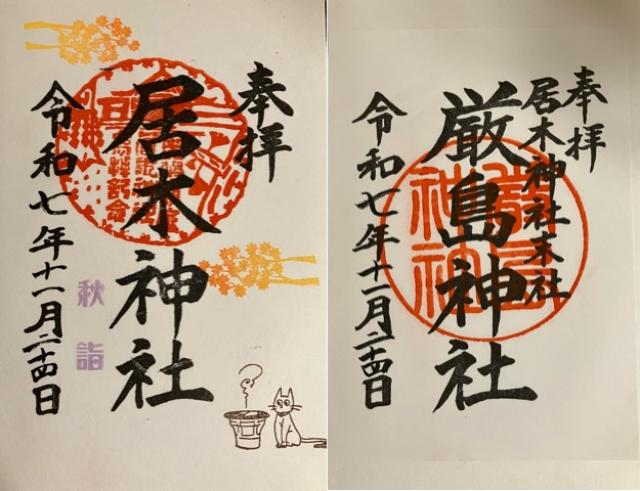 奉拝
居木神社
秋詣
令和七年十一月二十四日
奉拝
居木神社末社
厳島神社
令和七年十一月二十四日